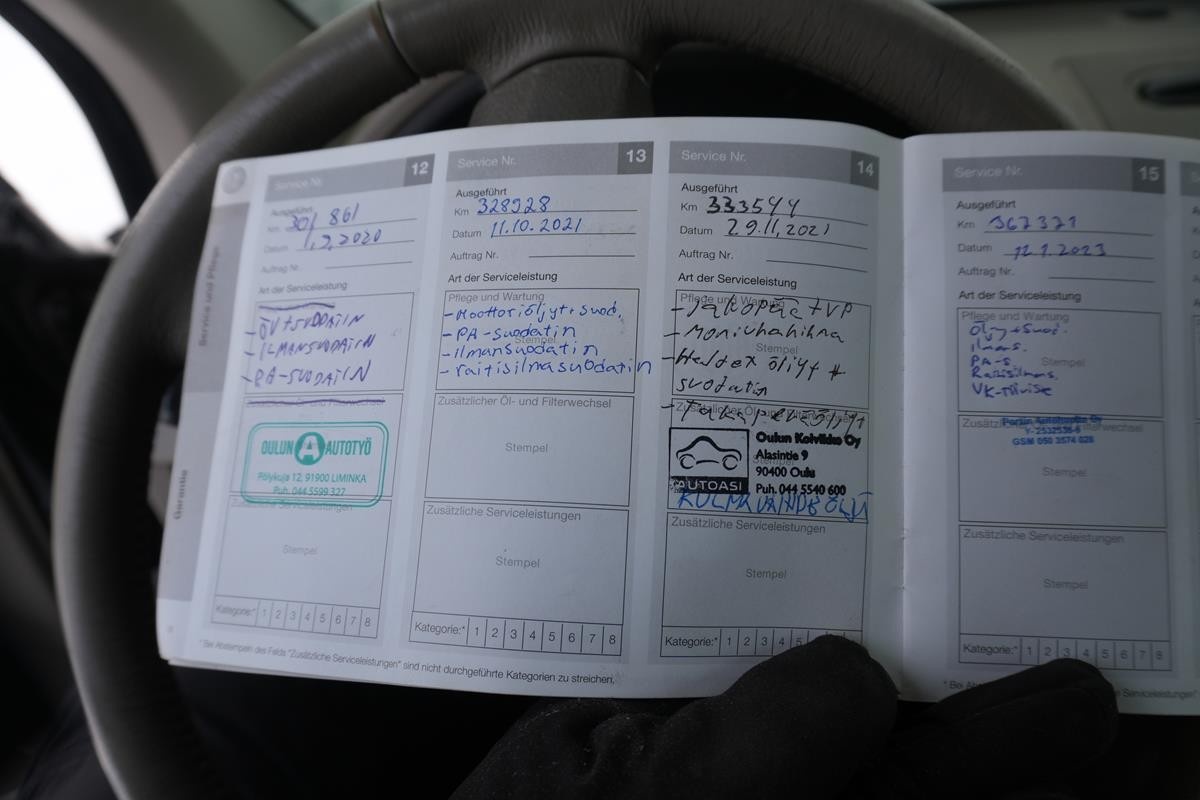 Service und Pflege
Garantie
Service Nr. 12
Ausgeführt
Km 301 861
Datum 1.2.2020
Auftrag Nr.
Art der Serviceleistung
- ÖV+SUODATIN
- ILMANSUODATIN
- PA-SUODATIN
Zusätzlicher Öl- und Filterwechsel
OULUN A AUTOTYÖ
Pölykuja 12, 91900 LIMINKA
Puh. 044 5599 327
Zusätzliche Serviceleistungen
Stempel
Kategorie:* 1 2 3 4 5 6 7 8
Service Nr. 13
Ausgeführt
Km 328928
Datum 11.10.2021
Auftrag Nr.
Art der Serviceleistung
Pflege und Wartung
- Moottoriöljyt+suod.
- PA-suodatin
Stempel
- ilmansuodatin
- raitisilmasuodatin
Zusätzlicher Öl- und Filterwechsel
Stempel
Zusätzliche Serviceleistungen
Stempel
Kategorie:* 1 2 3 4 5 6 7 8
* Bei Abstempeln des Felds "Zusätzliche Serviceleistungen" sind nicht durchgeführte Kategorien zu streichen.
Service Nr. 14
Ausgeführt
Km 333544
Datum 29.11.2021
Auftrag Nr.
Art der Serviceleistung
Pflege und Wartung
- Jakopää + VP
- Moniurahihna
Stempel
- Haldex öljyt +
suodatin
Zusätzlicher Öl- und Filterwechsel
- Takaperäöljyt
Oulun Kolvikko Oy
Alasintie 9
90400 Oulu
Puh. 044 5540 600
AUTOASI
Zusätzliche Serviceleistungen
Stempel
Kategorie:* 1 2 3 4 5
Service Nr. 15
Ausgeführt
Km 367371
Datum 12.1.2023
Auftrag Nr.
Art der Serviceleistung
Pflege und Wartung
Öljy+suod.
ilmas.
PA-s.
Stempel
Raitisilmas.
VK-tiiviste
Oy
GSM 050 3574 028
Stempel
Zusätzliche Serviceleistungen
Stempel
Kategorie:* 1 2 3 4 5 6 7 8
* Bei
Serviceleistungen"